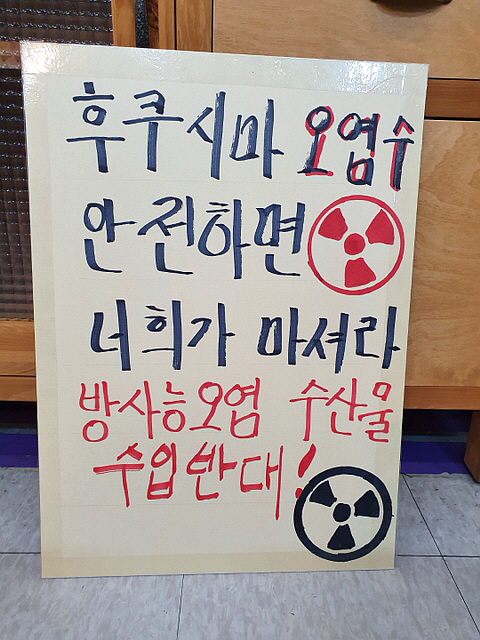 후쿠시마 오염수
안전하면
너희가 마셔라
방사능오염 수산물
수입반대!